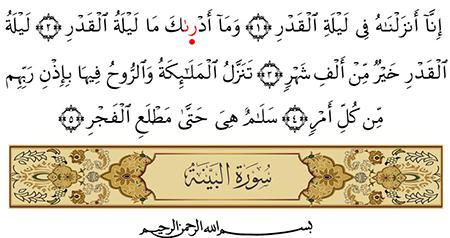 إِنَّآ أَنزَلْنَـٰهُ فِى لَيْلَةِ ٱلْقَدْرِ ﴿١﴾ وَمَآ أَدْرىٰكَ مَا لَيْلَةُ ٱلْقَدْرِ ﴿٢﴾ لَيْلَةُ
ٱلْقَدْرِ خَيْرٌ مِّنْ أَلْفِ شَهْرٍ ﴿٣﴾ تَنَزَّلُ ٱلْمَلَـٰٓئِكَةُ وَٱلرُّوحُ فِيهَا بِإِذْنِ رَبِّهِم
مِّن كُلِّ أَمْرٍ ﴿٤﴾ سَلَـٰمٌ هِىَ حَتَّىٰ مَطْلَعِ ٱلْفَجْرِ ﴿٥﴾
سُورَةُ الْبَيِّنَةِ
بسم الله الرحمن الرحيم